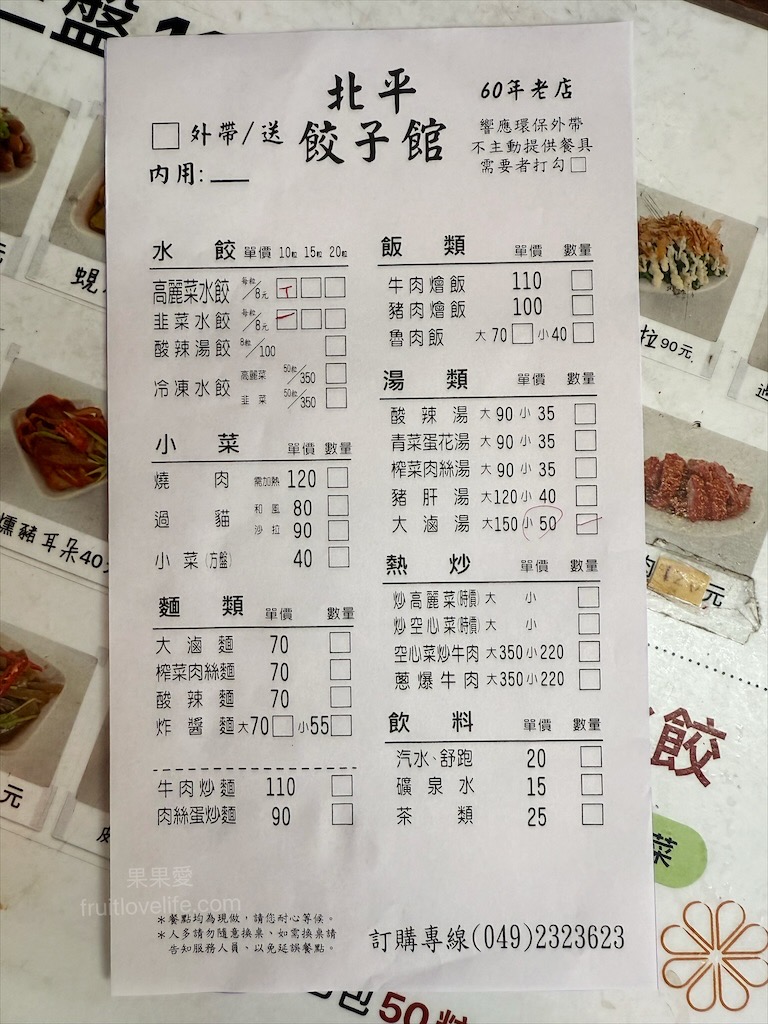 北平
餃子館
60年老店
外帶/送
內用:
響應環保外帶
不主動提供餐具
需要者打勾
水餃 單價 10粒 15粒 20粒
高麗菜水餃 每粒/8元
韭菜水餃 每粒/8元
酸辣湯餃 8粒/100
冷凍水餃 高麗菜 50粒/350
韭菜 50粒/350
小菜 單價 數量
燒肉 需加熱 120
過貓 和風 80
沙拉 90
小菜(方盤) 40
麵類 單價 數量
大滷麵 70
榨菜肉絲麵 70
酸辣麵 70
炸醬麵 大70 小55
牛肉炒麵 110
肉絲蛋炒麵 90
飯類 單價 數量
牛肉燴飯 110
豬肉燴飯 100
魯肉飯 大70 小40
湯類 單價 數量
酸辣湯 大90 小35
青菜蛋花湯 大90 小35
榨菜肉絲湯 大90 小35
豬肝湯 大120 小40
大滷湯 大150 小50
熱炒 單價 數量
炒高麗菜(時價) 大 小
炒空心菜(時價) 大 小
空心菜炒牛肉 大350 小220
蔥爆牛肉 大350 小220
飲料 單價 數量
汽水、舒跑 20
礦泉水 15
茶類 25
果果愛
fruitlovelife.com
*餐點均為現做，請您耐心等候。
*人多請勿隨意換桌、如需換桌請
告知服務人員、以免延誤餐點。
訂購專線(049)2323623
盤
蜆
燻豬耳朵40
元
拉90元
元
餃
菜
50粒